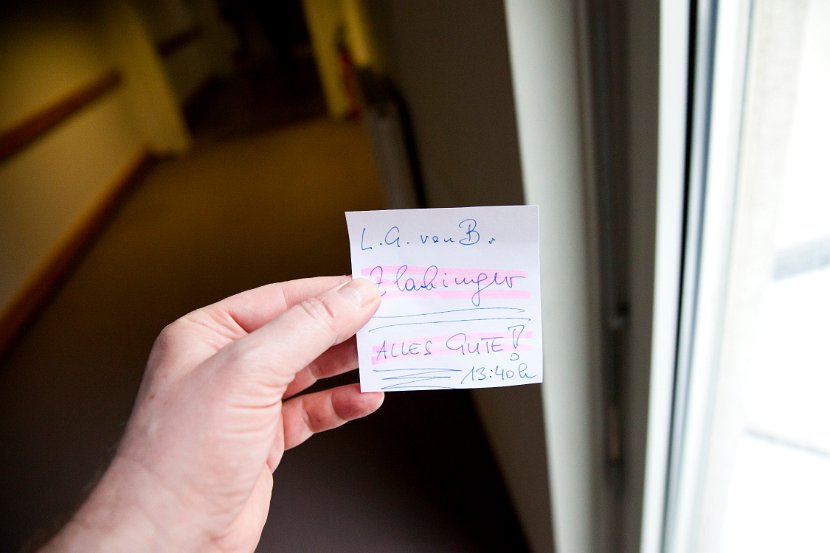 L.G. von B.
ALLES GUTE!
13:40h